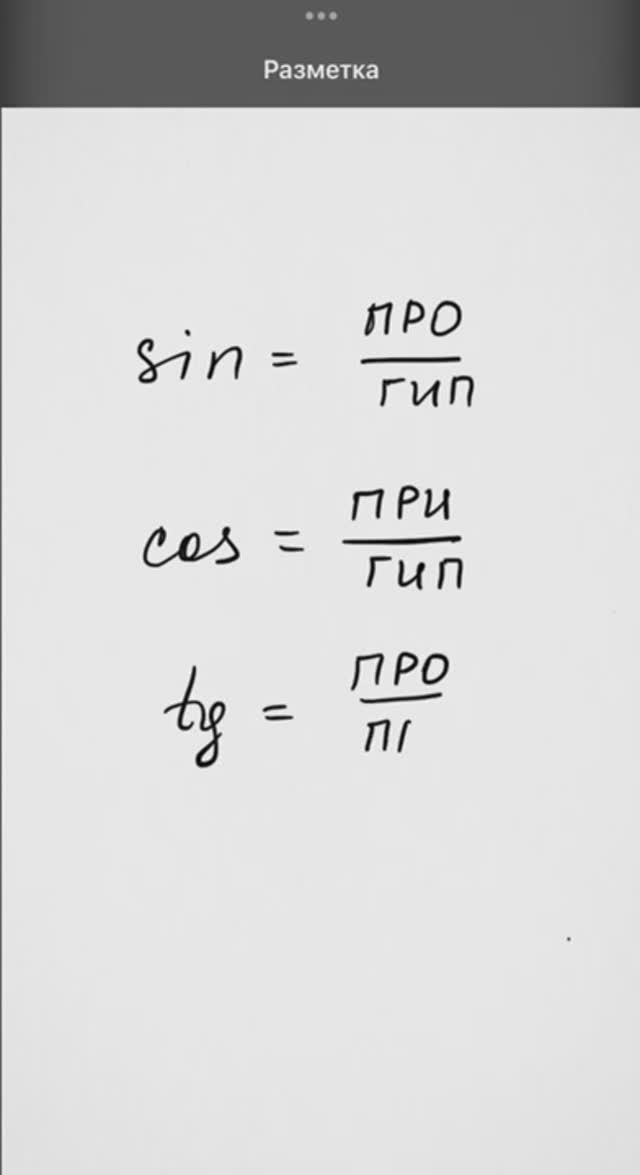 Разметка
sin = ПРО
ГИП
cos = ПРИ
ГИП
tg = ПРО